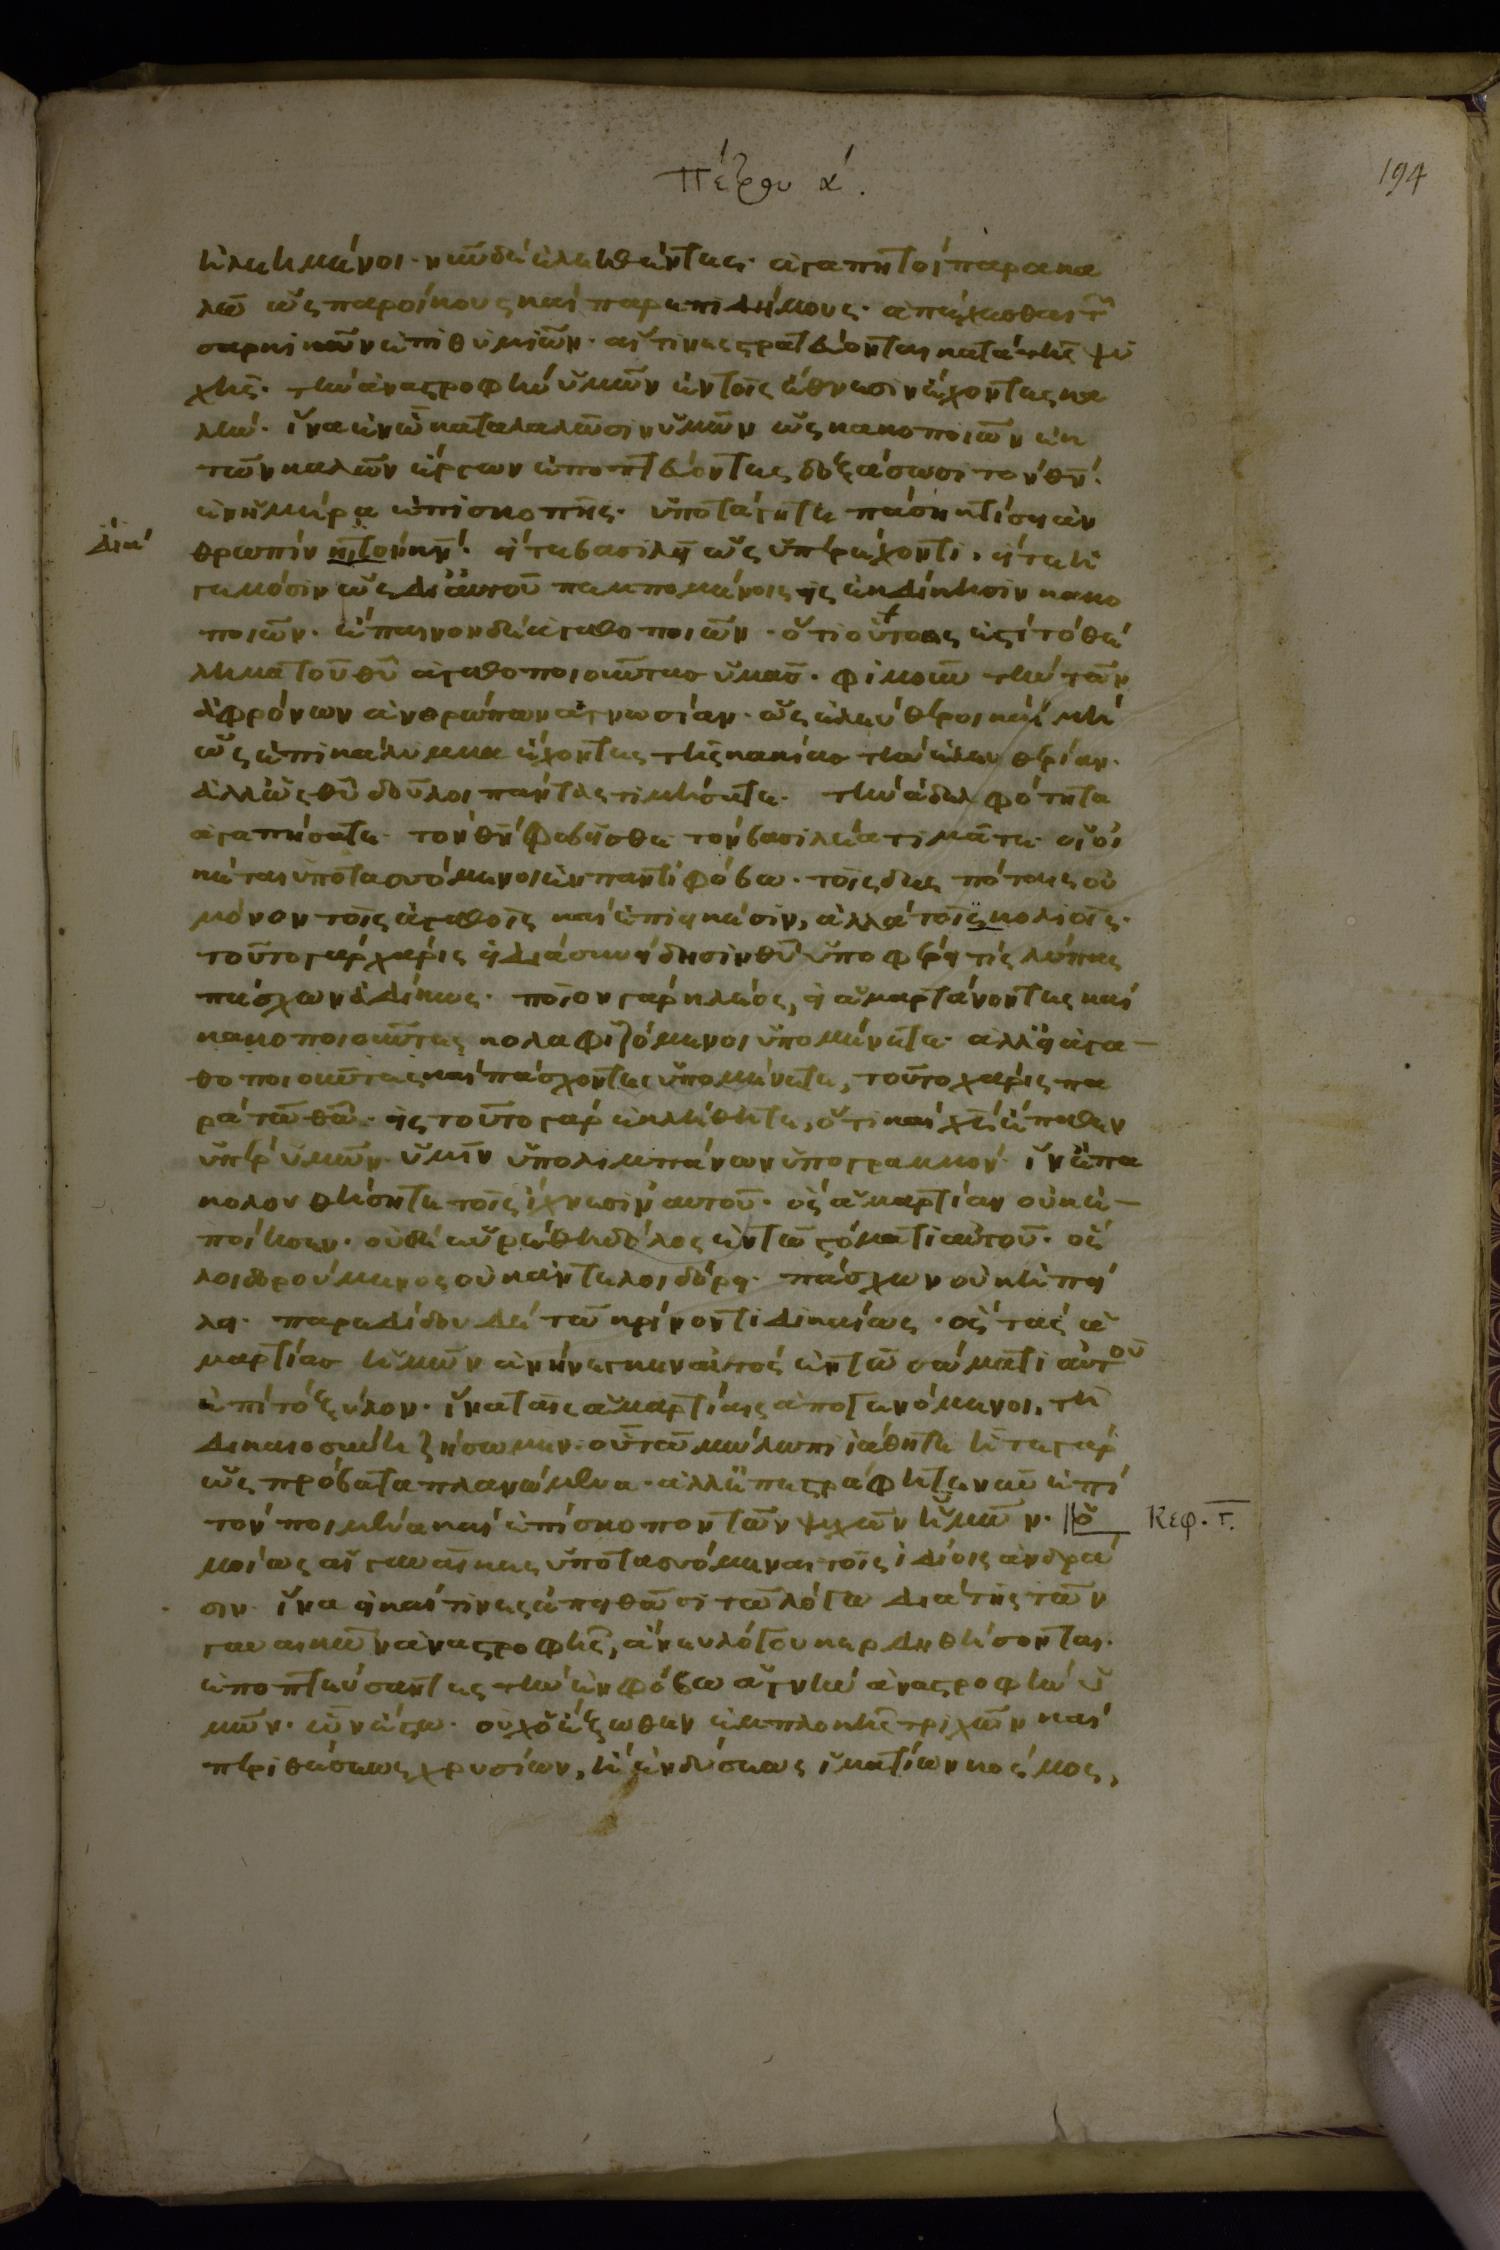 Πέτρου α´.
194
ἠλεημένοι· νῦν δὲ ἐλεηθέντες· ἀγαπητοὶ παρακα
λῶ ὡς παροίκους καὶ παρεπιδήμους· ἀπέχεσθαι τῶν
σαρκικῶν ἐπιθυμιῶν· αἵτινες στρατεύονται κατὰ τῆς ψυ
χῆς· τὴν ἀναστροφὴν ὑμῶν ἐν τοῖς ἔθνεσιν ἔχοντες κα
λήν· ἵνα ἐν ᾧ καταλαλῶσιν ὑμῶν ὡς κακοποιῶν ἐκ
τῶν καλῶν ἔργων ἐποπτεύοντες δοξάσωσι τὸν θν̄
ἐν ἡμέρα ἐπισκοπῆς· ὑποτάγητε πάση κτίσει ἀν
Διὰ
θρωπίν κ̣τὸν κν̄· εἴτε βασιλεῖ ὡς ὑπερέχοντι, εἴτε ἡ
γεμόσιν ὡς δι αὐτοῦ πεμπομένοις εἰς ἐκδίκησιν κακο
ποιῶν· ἔπαινον δὲ ἀγαθοποιῶν· ὅτι οὕτως ἐστὶ τὸ θέ
λημα τοῦ θῦ ἀγαθοποιοῦντας ὑμᾶς· φιμοῦν τὴν τῶν
ἀφρόνων ἀνθρώπων ἀγνωσίαν· ὡς ἐλεύθεροι καὶ μὴ
ὡς ἐπικάλυμμα ἔχοντες τῆς κακίας τὴν ἐλευθερίαν·
ἀλλ ὡς θῦ δοῦλοι πάντας τιμήσατε· τὴν ἀδελφότητα
ἀγαπήσατε· τὸν θν̄ φοβεῖσθε τὸν βασιλέα τιμᾶτε· οἱ οἰ
κέται ὑποτασσόμενοι ἐν παντὶ φόβω· τοῖς δεσπόταις οὐ
μόνον τοῖς ἀγαθοῖς καὶ ἐπιεικέσιν, ἀλλὰ τοῖς κολιοῖς·
τοῦτο γὰρ χάρις εἰ διὰ συνείδησιν θῦ ὑποφέρει τὶς λύπας
πάσχων ἀδίκως· ποῖον γὰρ κλέος, εἰ ἁμαρτάνοντες καὶ
κακοποιοῦντες κολαφιζόμενοι ὑπομένετε· ἀλλ εἰ ἀγα
θοποιοῦντες καὶ πάσχοντες ὑπομένετε, τοῦτο χάρις πα
ρὰ τῶ θῶ· εἰς τοῦτο γὰρ ἐκλήθητε, ὅτι καὶ χς̄ ἔπαθεν
ὑπὲρ ὑμῶν· ὑμῖν ὑπολιμπάνων ὑπογραμμόν· ἵν ἐπα
κολουθήσητε τοῖς ἴχνεσιν αὐτοῦ· ὃς ἁμαρτίαν οὐκ ἐ
ποίησεν· οὐδὲ εὑρέθη δόλος ἐν τῶ στόματι αὐτοῦ· ὃς
λοιδορούμενος οὐκ ἀντελοιδόρει· πάσχων οὐκ ἠπεί
λει· παρεδίδου δὲ τῶ κρίνοντι δικαίως· ὃς τὰς ἁ
μαρτίας ἡμῶν ἀνήνεγκεν αὐτὸς ἐν τῶ σώματι αὐτοῦ
ἐπὶ τὸ ξύλον· ἵνα ταῖς ἁμαρτίαις ἀπογενόμενοι, τῆ
δικαιοσύνη ζήσωμεν· οὗ τῶ μώλωπι ἰάθητε ἦτε γὰρ
ὡς πρόβατα πλανώμενα· ἀλλ ἐπεστράφητε νῦν ἐπὶ
τὸν ποιμένα καὶ ἐπίσκοπον τῶν ψυχῶν ἡμῶν· || ὁ Κεφ. Γ.
μοίως αἱ γυναῖκες ὑποτασσόμεναι τοῖς ἰδίοις ἀνδρά
σιν· ἵνα εἰ καί τινες ἀπειθῶσι τῶ λόγω διὰ τῆς τῶν
γυναικῶν ἀναστροφῆς, ἄνευ λόγου κερδηθήσονται·
ἐποπτεύσαντες τὴν ἐν φόβω ἁγνὴν ἀναστροφὴν ὑ
μῶν· ὧν ἔστω· οὐχ ὁ ἔξωθεν ἐμπλοκῆς τριχῶν καὶ
περιθέσεως χρυσίων, ἢ ἐνδύσεως ἱματίων κόσμος,